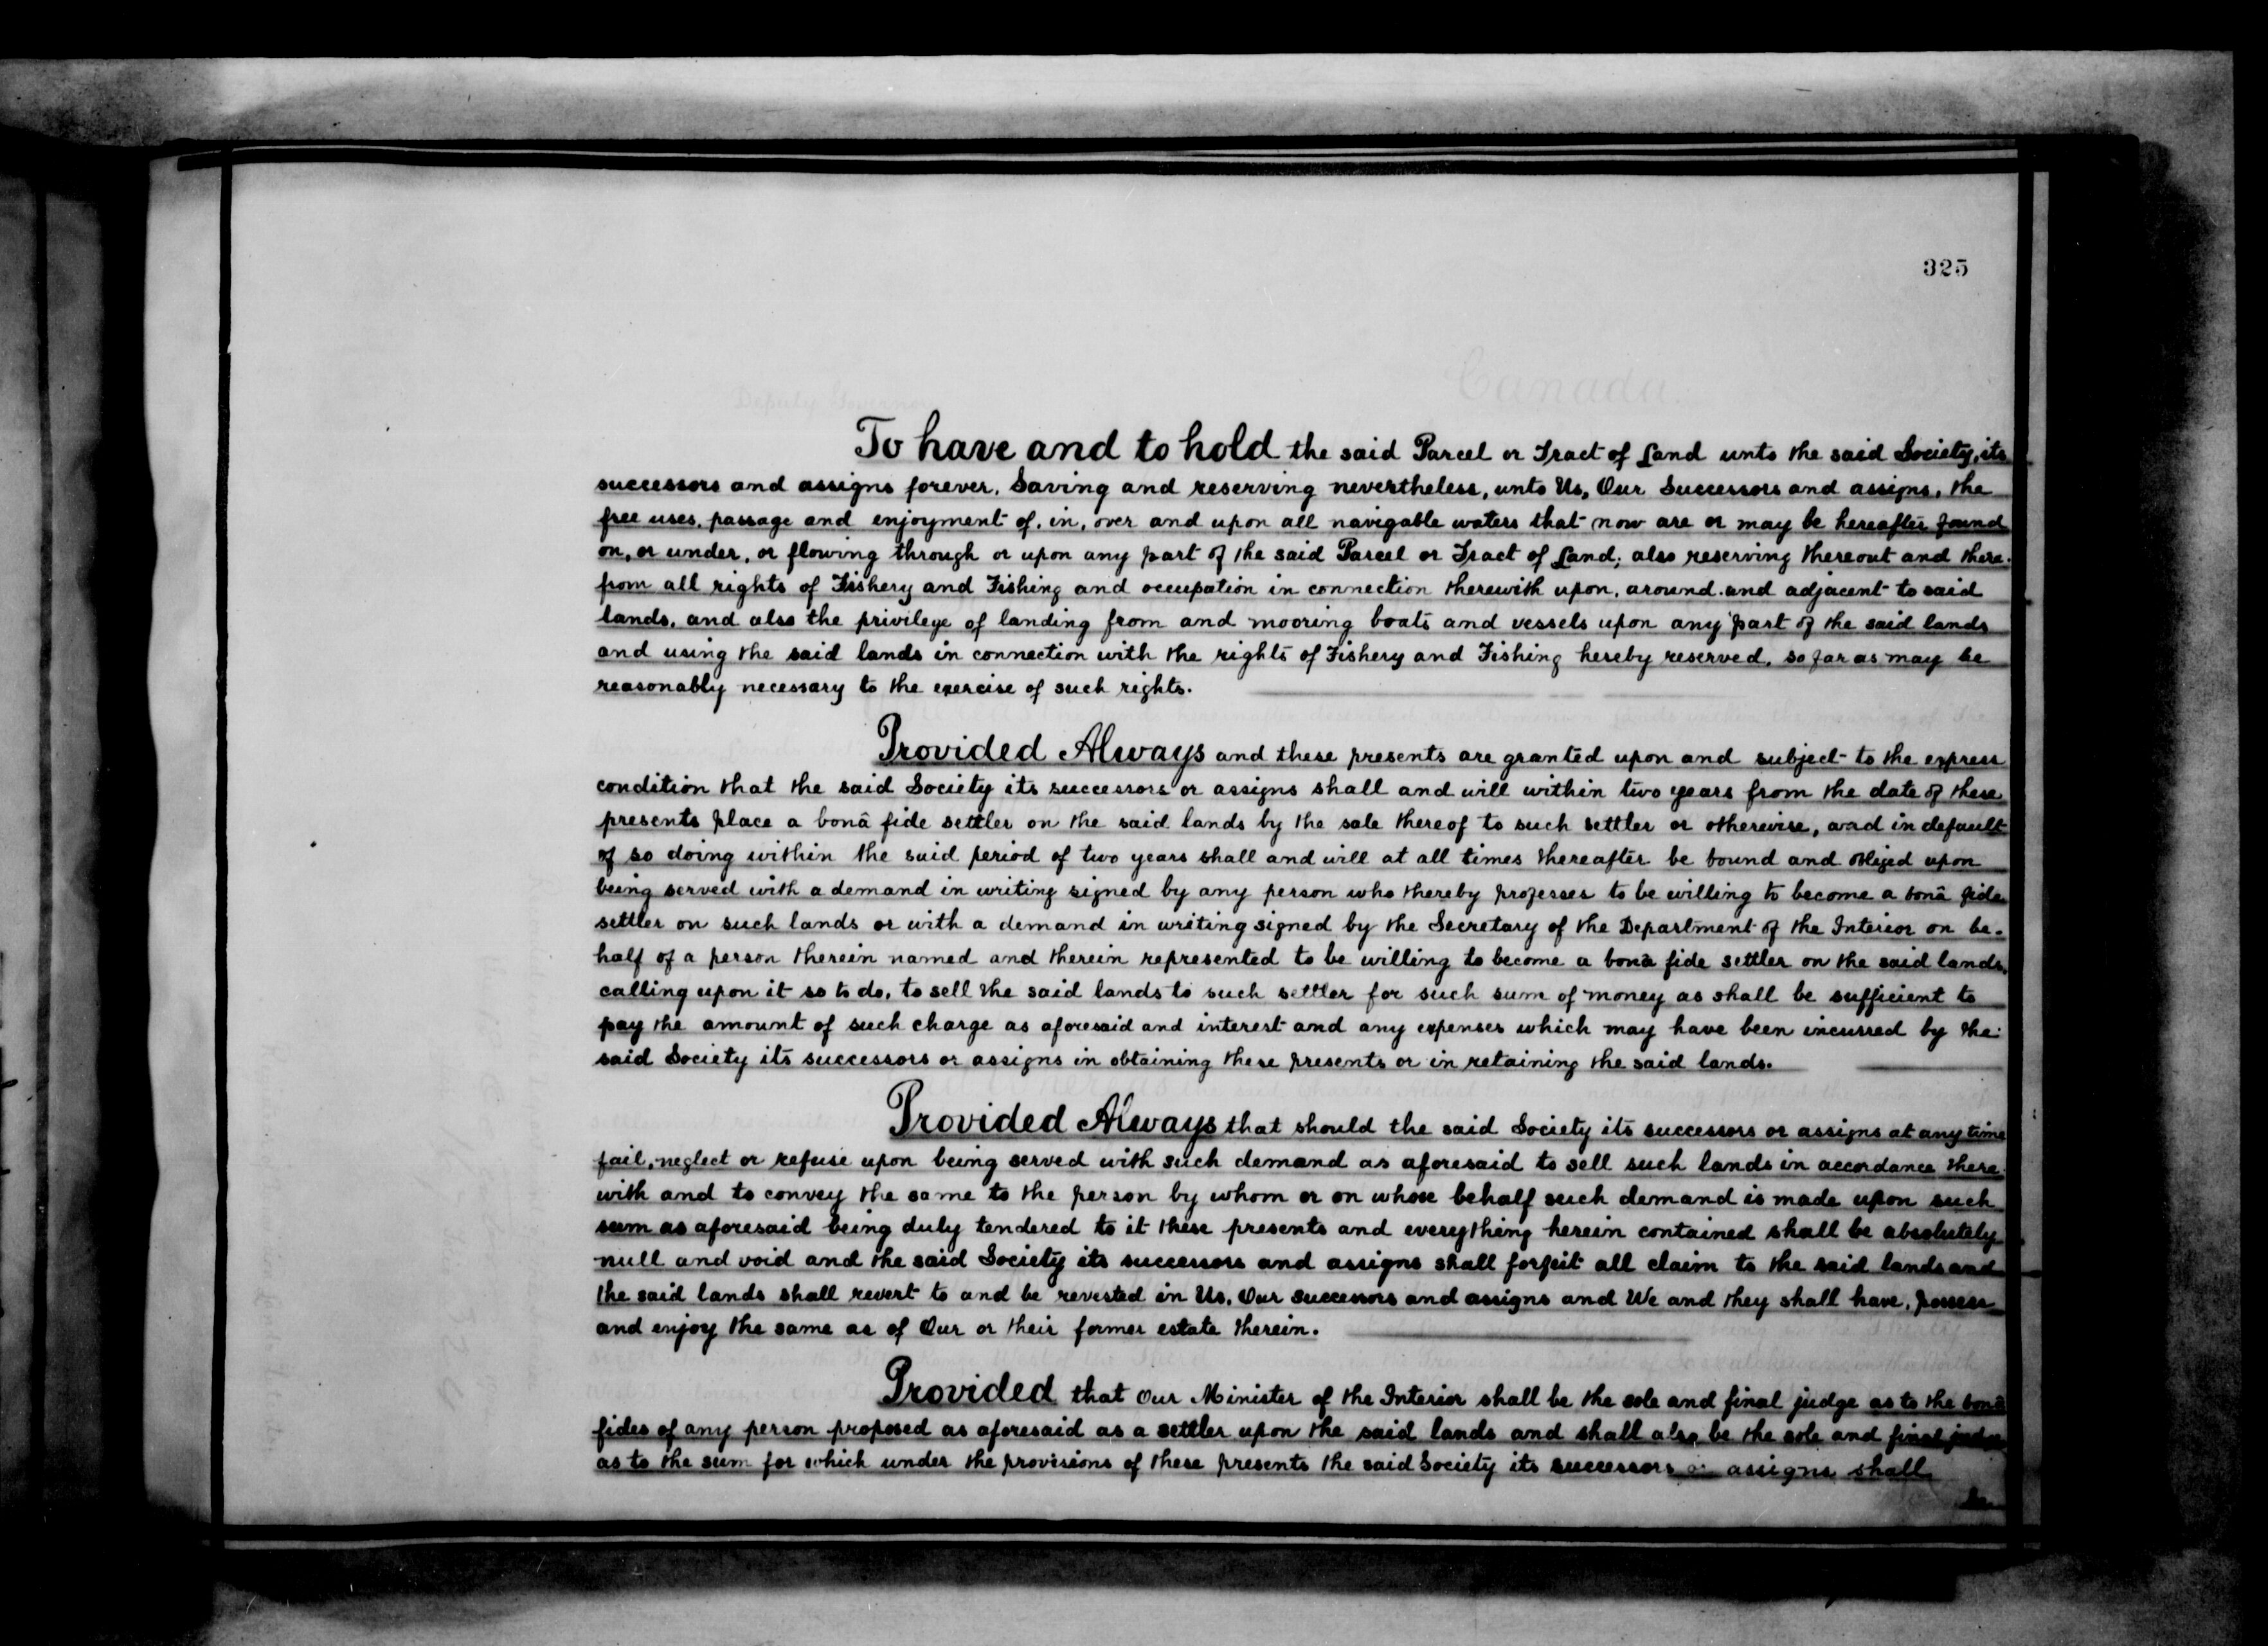 325
To have and to hold the said Parcel or Tract of Land unto the said Society, its
successors and assigns forever. Saving and reserving nevertheless, unto Us, Our Successors and assigns, the
free uses, passage and enjoyment of, in, over and upon all navigable waters that now are or may be hereafter found
on, or under, or flowing through or upon any part of the said Parcel or Tract of Land; also reserving thereout and there-
from all rights of Fishery and Fishing and occupation in connection therewith upon, around and adjacent to said
lands, and also the privilege of landing from and mooring boats and vessels upon any part of the said lands
and using the said lands in connection with the rights of Fishery and Fishing hereby reserved, so far as may be
reasonably necessary to the exercise of such rights.
Provided Always and these presents are granted upon and subject to the express
condition that the said Society its successors or assigns shall and will within two years from the date of these
presents place a bonâ fide settler on the said lands by the sale thereof to such settler or otherwise, and in default
of so doing within the said period of two years shall and will at all times thereafter be bound and obliged upon
being served with a demand in writing signed by any person who thereby professes to be willing to become a bonâ fide
settler on such lands or with a demand in writing signed by the Secretary of the Department of the Interior on be-
half of a person therein named and therein represented to be willing to become a bonâ fide settler on the said lands,
calling upon it so to do, to sell the said lands to such settler for such sum of money as shall be sufficient to
pay the amount of such charge as aforesaid and interest and any expenses which may have been incurred by the
said Society its successors or assigns in obtaining these presents or in retaining the said lands.
Provided Always that should the said Society its successors or assigns at any time
fail, neglect or refuse upon being served with such demand as aforesaid to sell such lands in accordance there-
with and to convey the same to the person by whom or on whose behalf such demand is made upon such
sum as aforesaid being duly tendered to it these presents and everything herein contained shall be absolutely
null and void and the said Society its successors and assigns shall forfeit all claim to the said lands and
the said lands shall revert to and be revested in Us, Our successors and assigns and We and they shall have, possess
and enjoy the same as of Our or their former estate therein.
Provided that Our Minister of the Interior shall be the sole and final judge as to the bonâ
fides of any person proposed as aforesaid as a settler upon the said lands and shall also be the sole and final judge
as to the sum for which under the provisions of these presents the said Society its successors or assigns shall
be